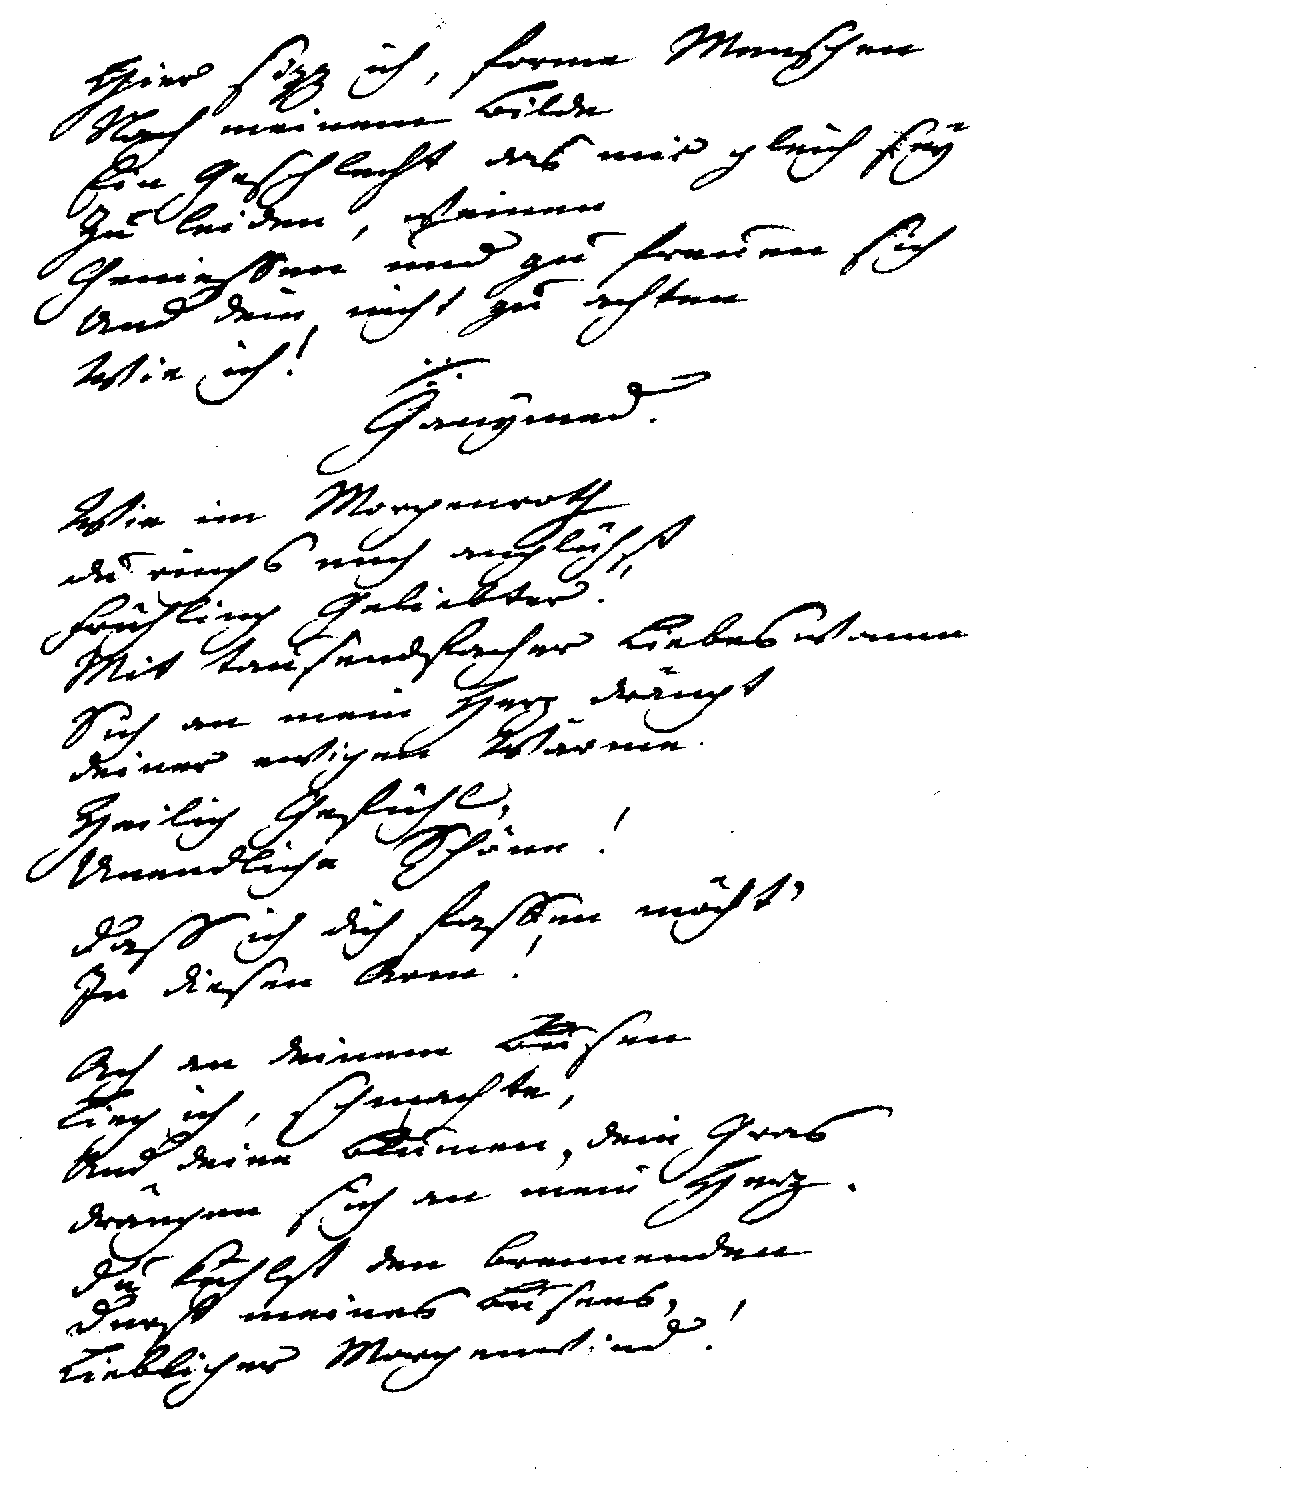 Hier sizz ich, forme Menschen
Nach meinem Bilde
Ein Geschlecht das mir gleich sey
Zu leiden, weinen
Geniessen und zu freuen sich
Und dein nicht zu achten
Wie ich!
Ganymed.
Wie im Morgenroth
du rings mich anglühst
Frühling Geliebter!
Mit tausendfacher Liebeswonne
Sich an mein Herz drängt
deiner ewigen Wärme
Heilig Gefühl,
Unendliche Schöne!
Dass ich dich fassen möcht'
In diesen Arm!
Ach an deinem Busen
Lieg ich, schmachte,
Und deine Blumen, dein Gras
drängen sich an mein Herz.
Du kühlst den brennenden
Durst meines Busens,
Lieblicher Morgenwind!